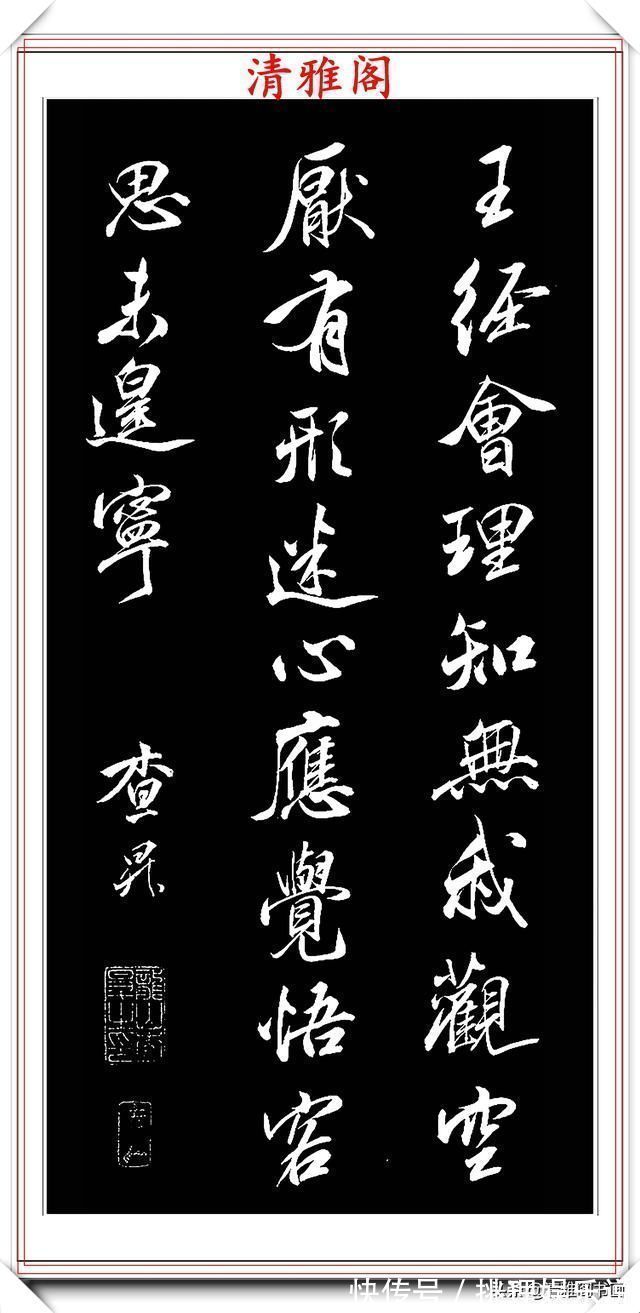 清雅阁
王經會理知無我觀空
厭有形迷心應覺悟客
思未遑寧
查昇
快传号/